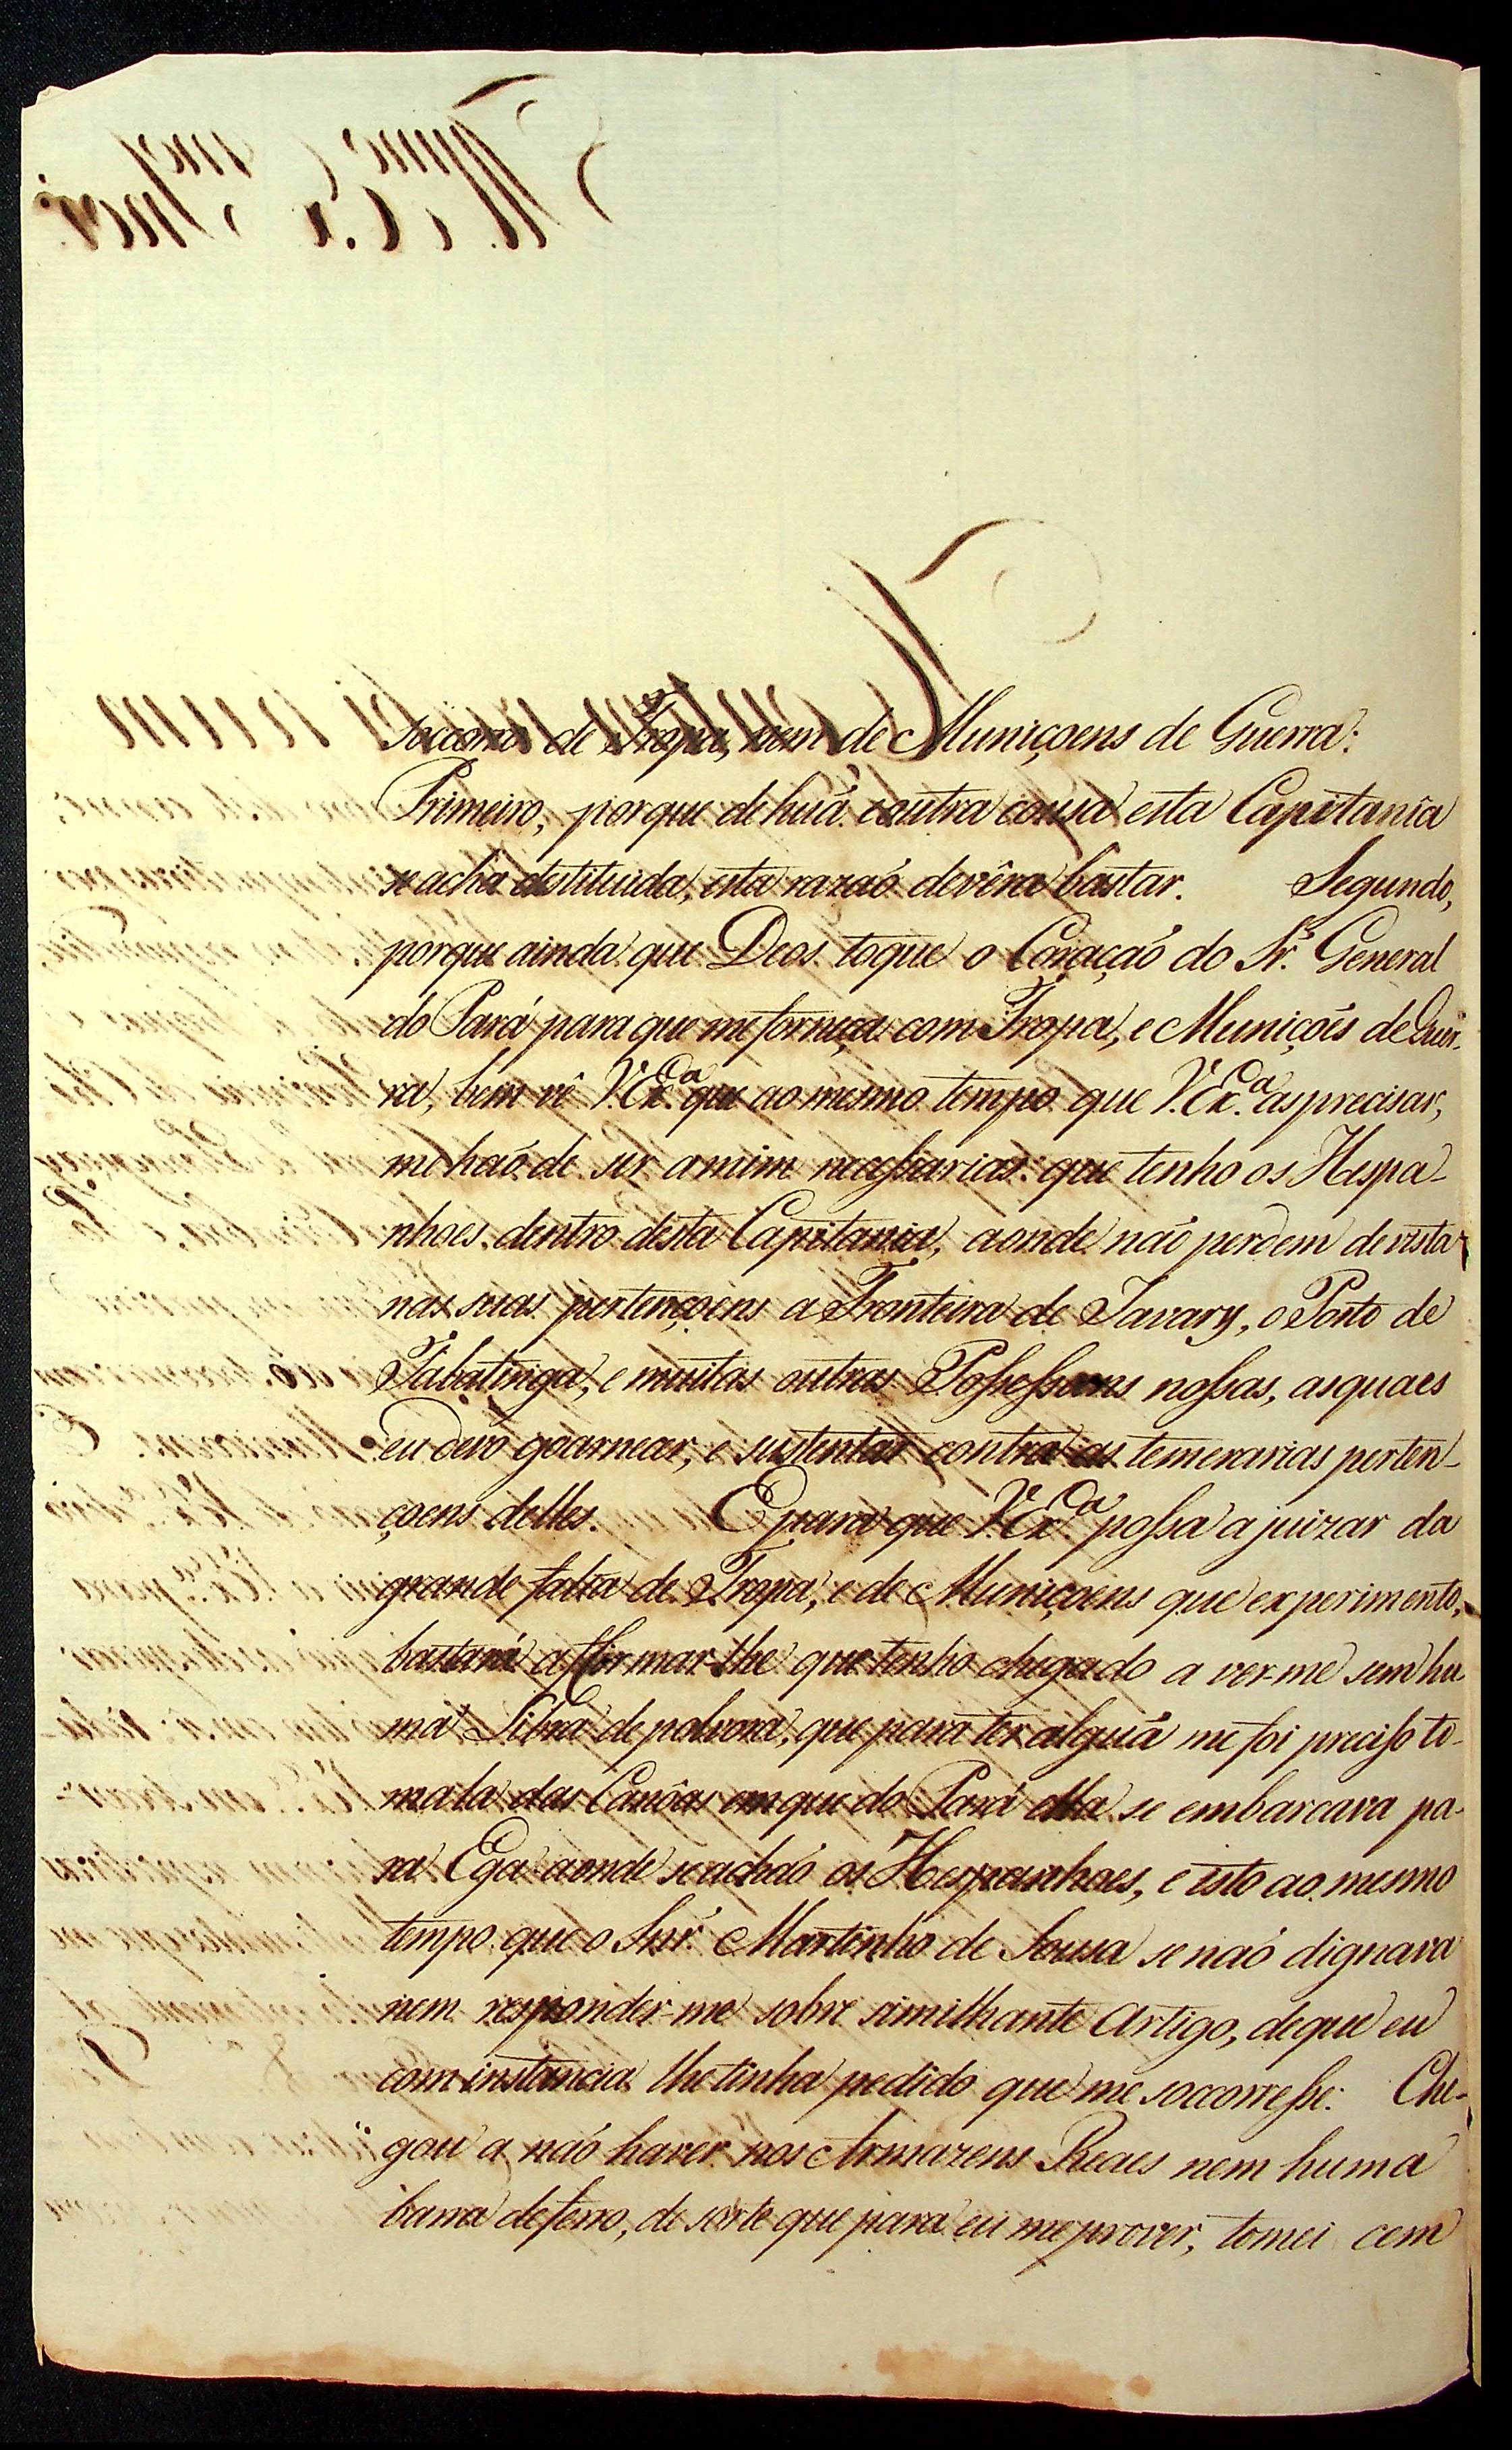 soccorro de Tropa, nem de Muniçoens de Guerra:
Primeiro, porque de huã, e outra cousa esta Capitania
se acha destituida, esta razaõ devêra bastar. Segundo,
porque ainda que Deos toque o Coraçaõ do Sr. General
do Pará para que me forneça com Tropa, e Muniçoẽs de Guer-
ra, bem vê V. Ex.ca que ao mesmo tempo que V. Ex.ca as precisar,
me haõ de ser a mim necessarias: que tenho os Hespa-
nhoes dentro desta Capitania, aonde naõ perdem de vista
nas suas pertençoens a Fronteira de Javary, o Porto de
Tabatinga, e muitas outras Possessoens nossas, as quaes
eu devo goarnecer, e sustentar contra as temerarias perten-
çoens delles. E para que V. Ex.ca possa ajuizar da
grande falta de Tropa, e de Muniçoens que experimento,
bastará affirmar-lhe que tenho chegado a ver-me sem hu-
ma Libra de polvora, que para ter alguã me foi preciso to-
mala das Canôas em que do Pará ella se embarcava pa-
ra Ega aonde se achaõ os Hespanhoes, e isto ao mesmo
tempo que o Snr. Martinho de Sousa se naõ dignava
nem responder-me sobre similhante Artigo, de que eu
com instancia lhe tinha pedido que me soccorresse: Che-
gou a naõ haver nos Armazens Reaes nem huma
barra de ferro, de sorte que para eu me prover, tomei cem